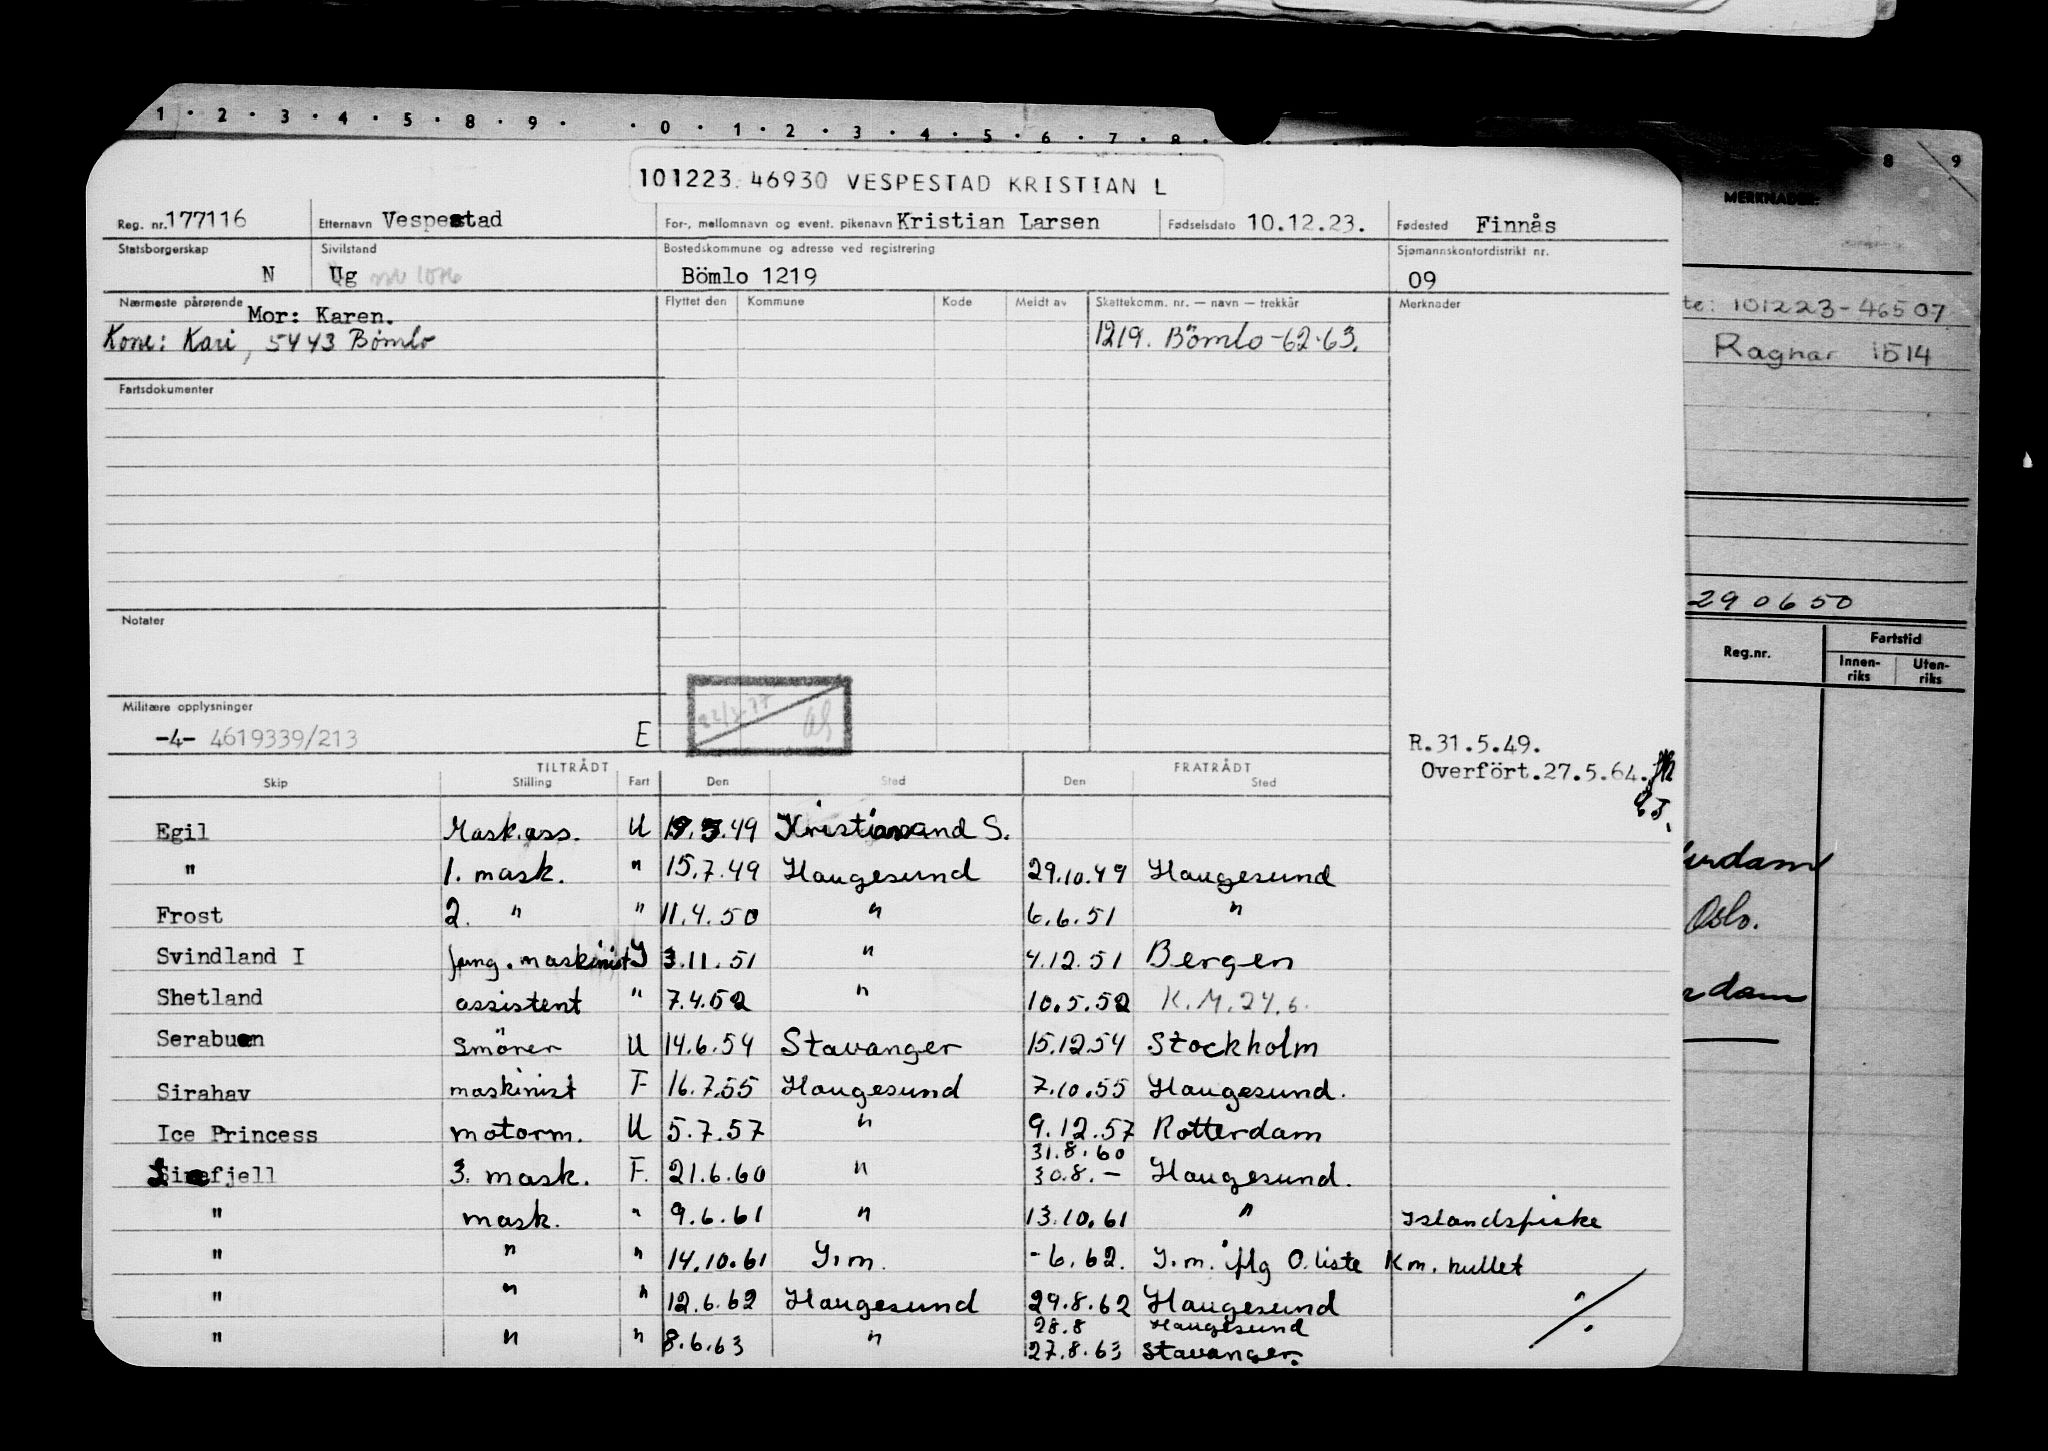 1 · 2 · 3 · 4 · 5 · 8 · 9 · · 0 · 1 · 2 · 3 · 4 · 5 · 6 · 7 · 8 ·
8 9
101223 46930 VESPESTAD KRISTIAN L
MERKNADER:
Reg. nr. 177116 Etternavn Vespestad For-, mellomnavn og event. pikenavn Kristian Larsen Fødselsdato 10.12.23. Fødested Finnås
Statsborgerskap N Sivilstand Ug Bostedskommune og adresse ved registrering Bömlo 1219 Sjømannskontordistrikt nr. 09
Nærmeste pårørende Mor: Karen. Flyttet den Kommune Kode Meldt av Skattekomm. nr. — navn — trekkår Merknader
Kone: Kari, 5443 Bømlo 1219. Bömlo -62-63.
te: 101223-46507
Ragnar 1514
Fartsdokumenter
290650
Notater
Reg.nr. Fartstid
Innen-riks Uten-riks
Militære opplysninger
-4- 4619339/213 E
R.31.5.49.
Overfört.27.5.64.
TILTRÅDT FRATRÅDT
Skip Stilling Fart Den Sted Den Sted
Egil Mask.ass. U 49 Kristiansand S.
" 1. mask. " 15.7.49 Haugesund 29.10.49 Haugesund
Frost 2. " " 11.4.50 " 6.6.51 "
Svindland I maskinist I 3.11.51 " 4.12.51 Bergen
Shetland assistent " 7.4.52 " 10.5.52 K.M.24.6.
Serabuen Smörer U 14.6.54 Stavanger 15.12.54 Stockholm
Sirahav maskinist F 16.7.55 Haugesund 7.10.55 Haugesund.
Ice Princess motorm. U 5.7.57 " 9.12.57 Rotterdam
31.8.60
fjell 3. mask. F. 21.6.60 " 30.8.— Haugesund.
" mask. " 9.6.61 " 13.10.61 " Islandsfiske
" " " 14.10.61 I.m. -6.62. I.m. iflg O.liste Km. kullet
" " " 12.6.62 Haugesund 29.8.62 Haugesund
28.8 Haugesund
" " " 8.6.63 " 27.8.63 Stavanger.
Oslo.